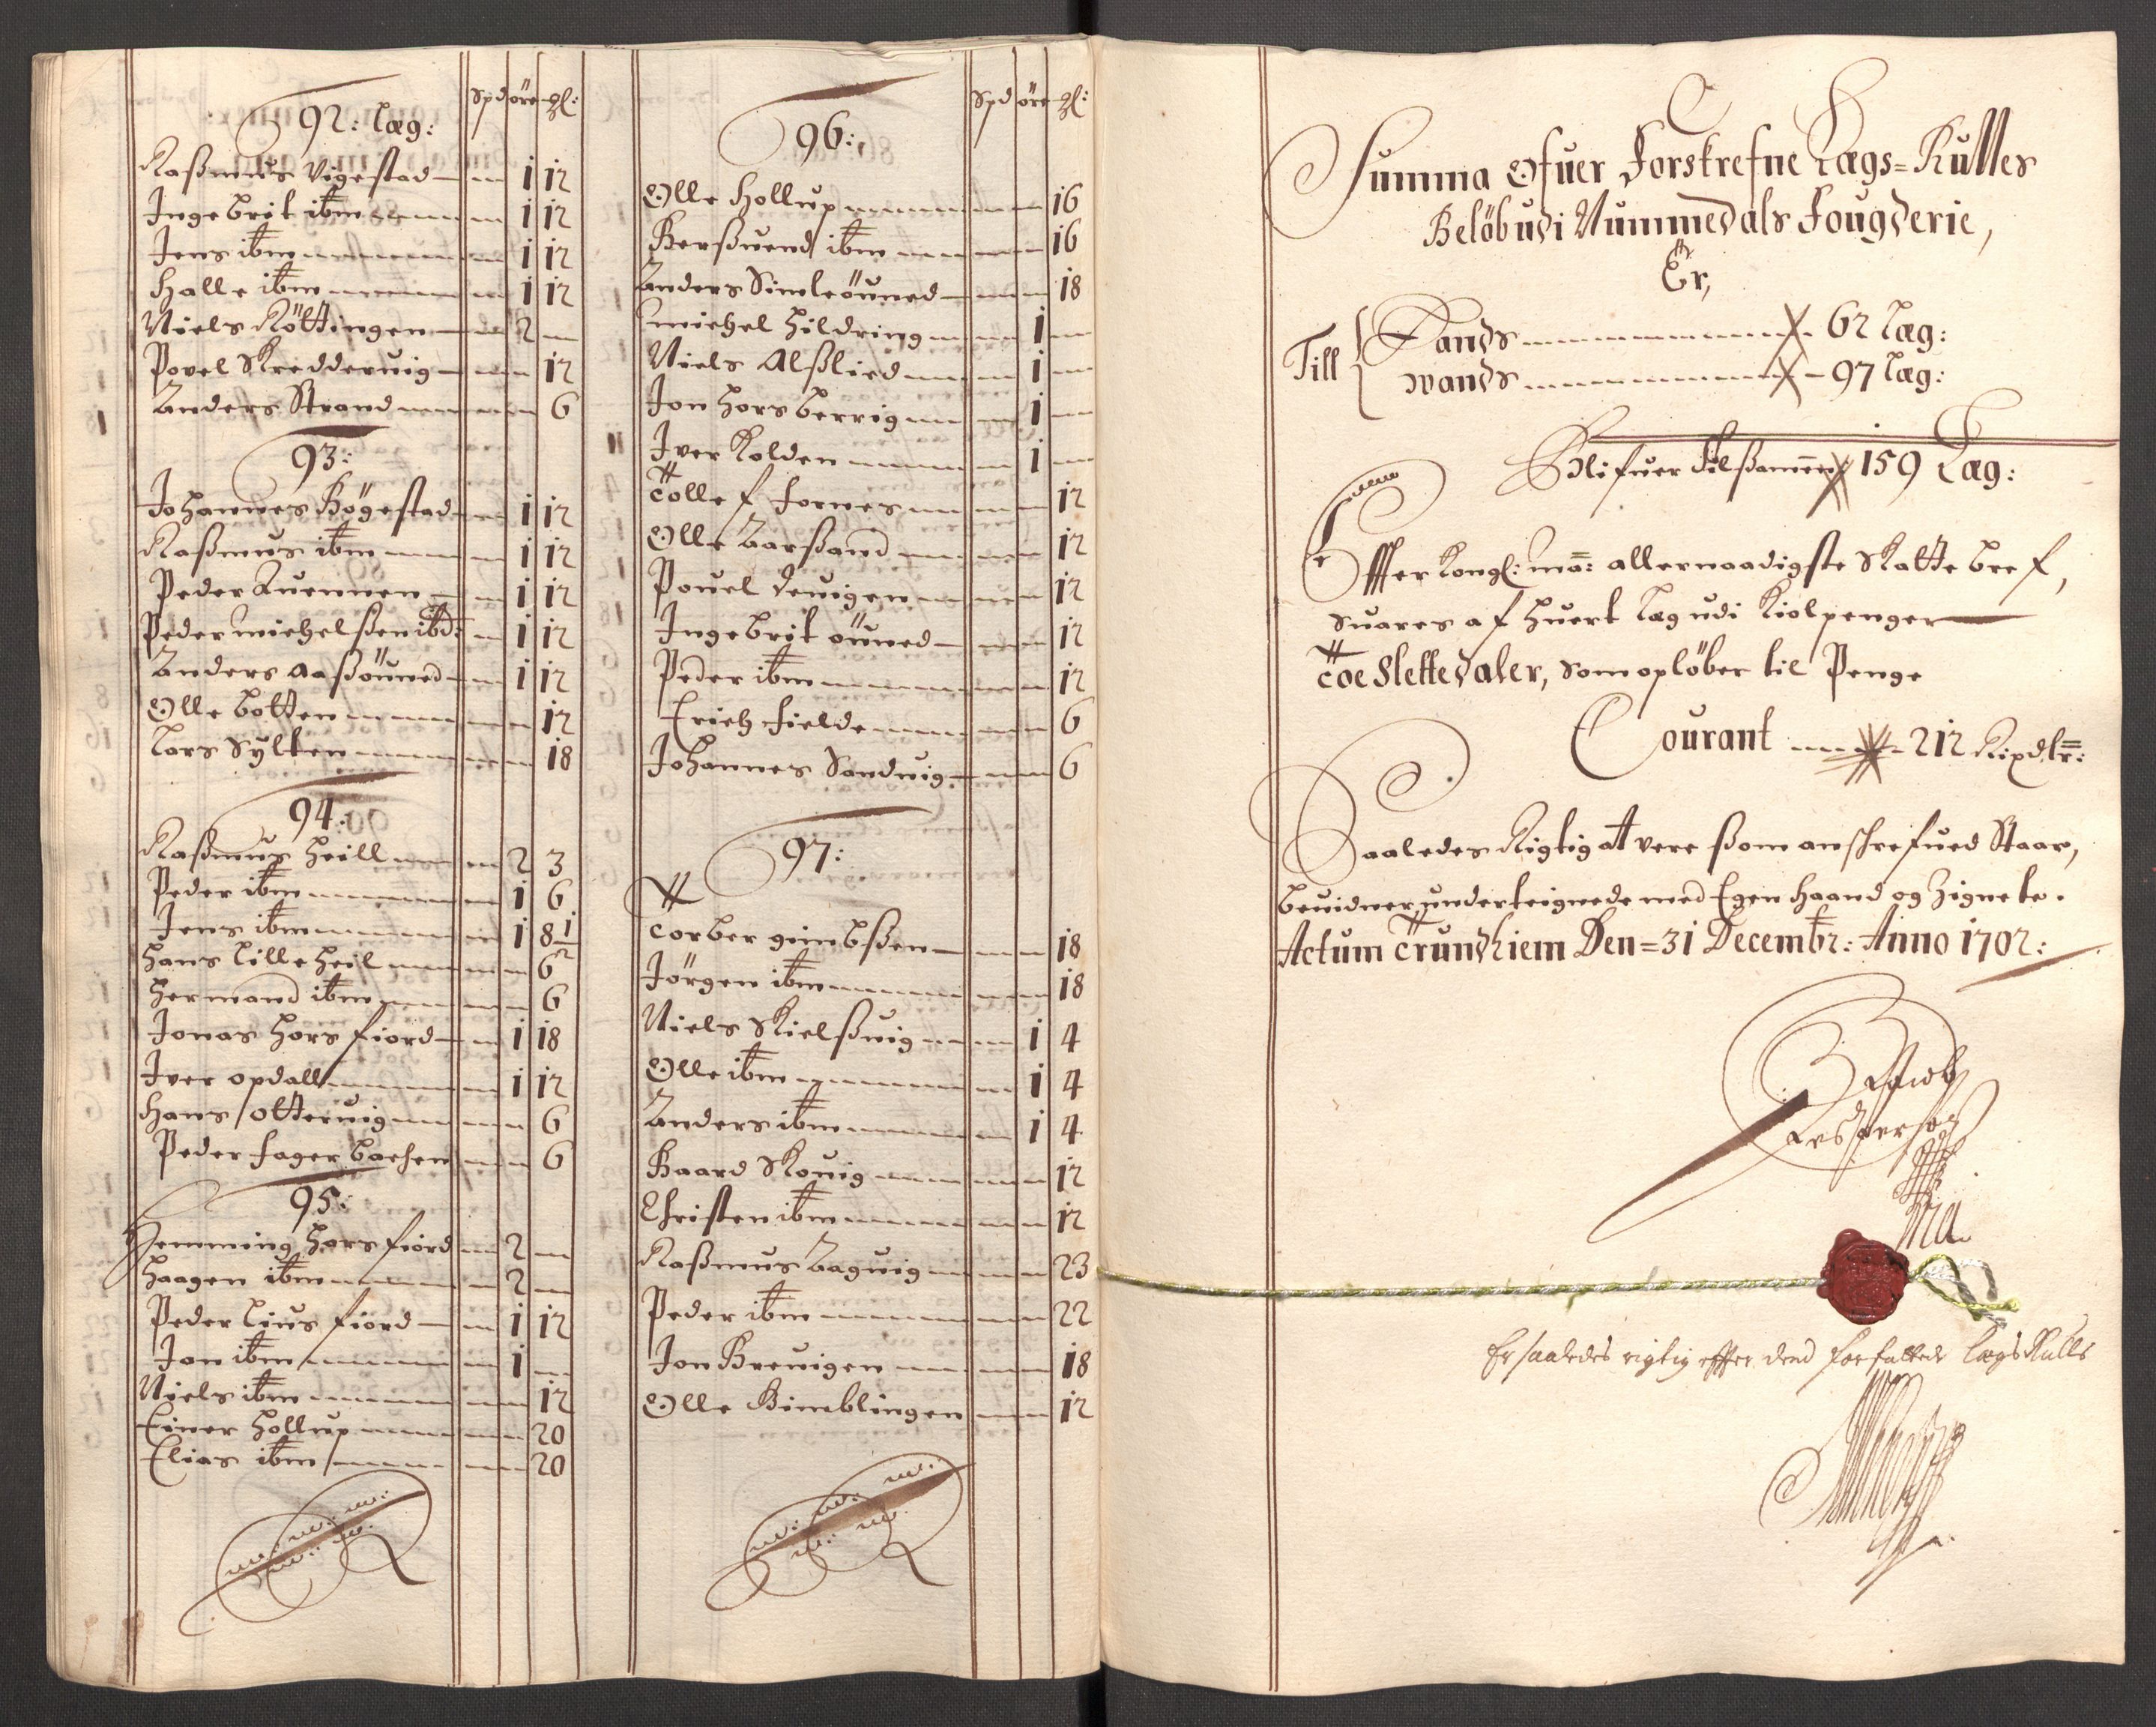 Spd öre gl:
92: Læg:
Raßmus Vigestad 1 12
Ingebrit ibm 1 12
Jens ibm 1 12
Halle ibm 1 12
Niels Röttingen 2
Povel Skreddervig 12
Anders Strand 6
93:
Johannes Bögestad 1 12
Raßmus ibm 1 12
Peder Quennen 1 12
Peder michelßen ibd: 1 12
Anders Aaßöuned 1 12
Olle Botten 12
Lars Sylten 18
94:
Raßmus Heill 2 3
Peder ibm 1 6
Jens ibm 1 8 1/2
Hans Lille Heil 6
Hermand ibm 6
Jonas Horsfiord 1 18
Iver opdall 1 12
Hans Ottervig 6
Peder fager backen 6
95:
Hemming Horsfiord 2
Haagen ibm 2
Peder Liusfiord 1 12
Jon ibm 1
Niels ibm 12
Einer Hollup 20
Elias ibm 20
Spd öre gl:
96:
Olle Hollup 16
Berßuend ibm 16
Anders Simleöuned 18
michel Hildring 1
Niels Alßlied 1
Jon Horsberrig 1
Iver Kolden 1
Tolle f fornes 12
Olle Aarßand 12
Pouel Devigen 12
Ingebrit öuned 12
Peder ibm 12
Erich fielde 6
Johannes Sandvig 6
97:
Torber gimbßen 18
Jörgen ibm 18
Niels Skielßvig 1 4
Olle ibm 1 4
Anders ibm 1 4
Baard Skouig 12
Christen ibm 12
Raßmus Bagvig 23
Peder ibm 22
Jon Brevigen 18
Olle Kimblingen 12
Summa Ofuer Forskrefne Lægs=Rulles
Belöb udi Nummedals Fougderie,
Er,
Till Lands 62 Læg:
wands 97 Læg:
Blifuer Tilßamen 159 Læg:
Effter Kongl: ma: allernaadigste Skatte bref,
Suares af Huert Læg udi Kiolpenger
Toe Slettedaler, Som oplöber til Penge
Courant 212 Rixdlr:
Saaledes Rigtig at vere ßom anskrefued Staar,
bevidner underteignede med Egen Haand og Zignete.
Actum Trundhiem Den=31 Decembr: Anno 1702:
Er saaledes rigtig effter dend forfattede Lægs Rulle